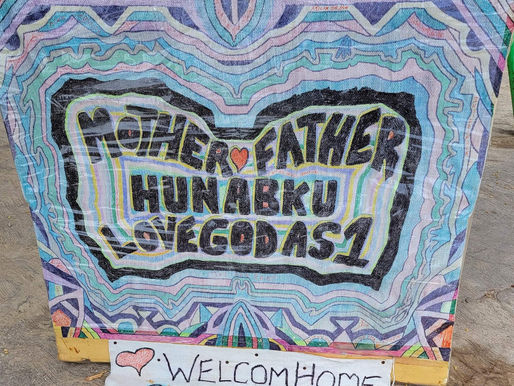 MOTHER FATHER
HUNABKU
LOVEGOD AS 1
WELCOM HOME